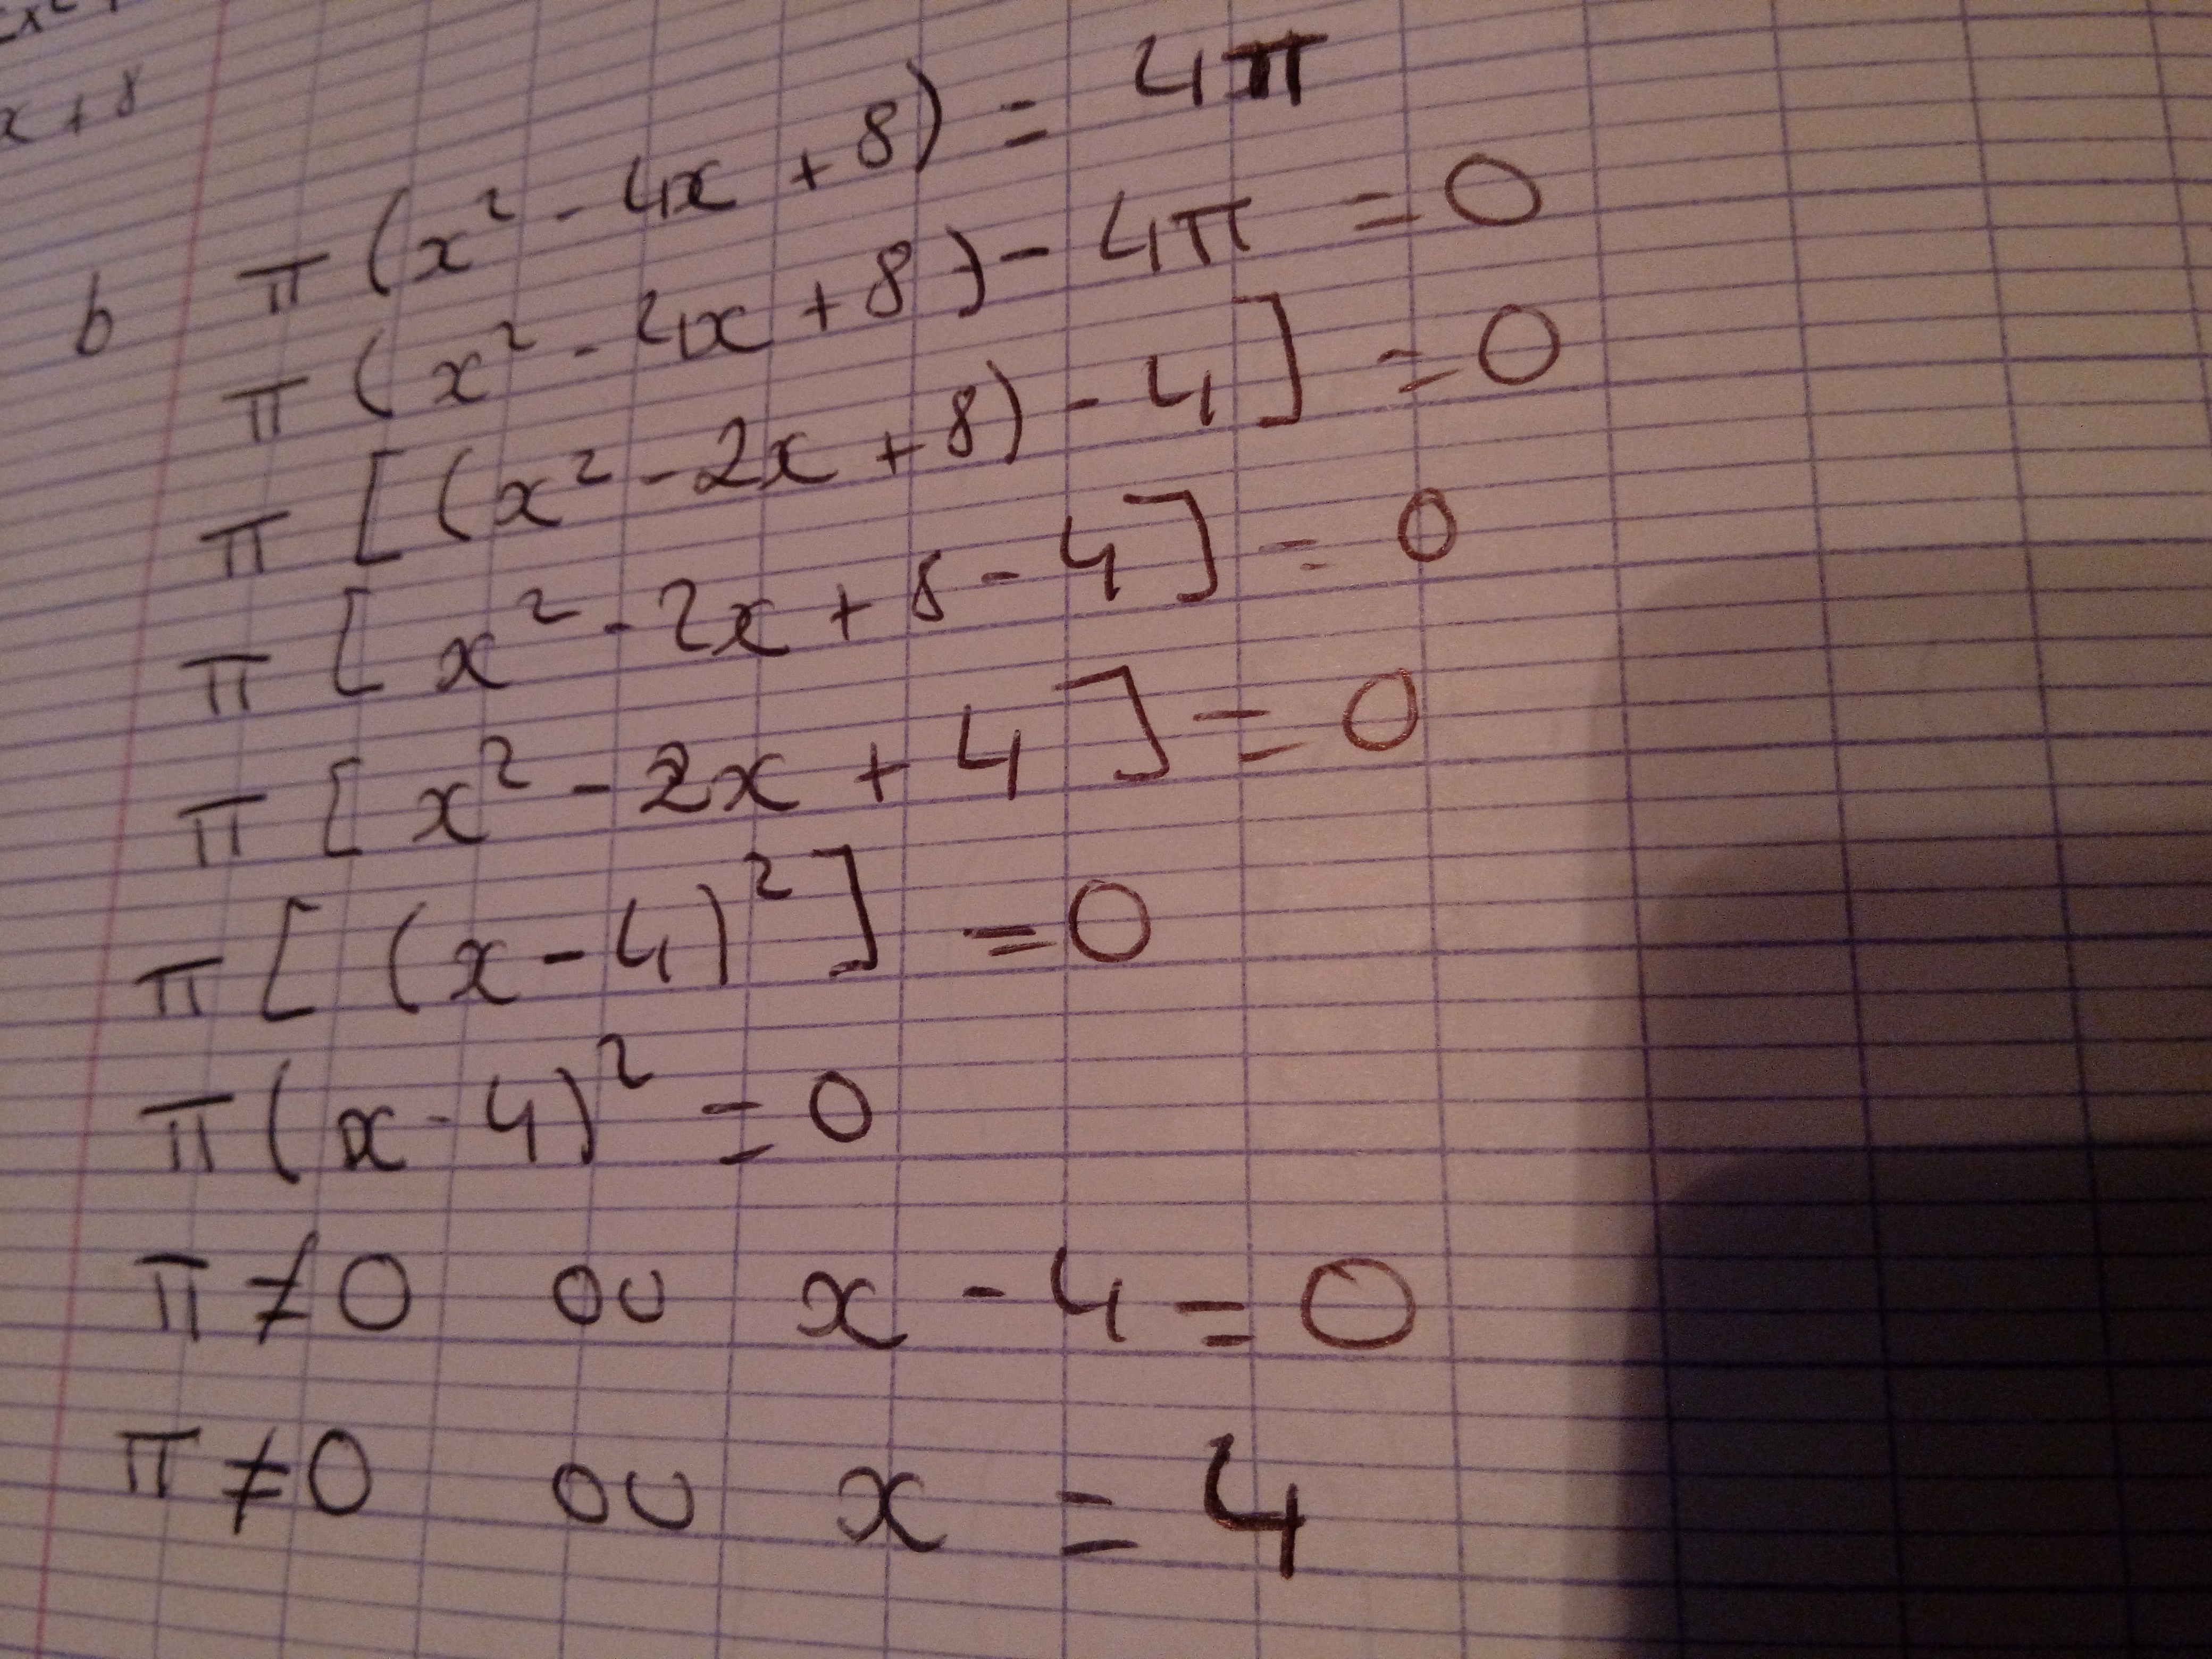 x + 8
b π (x² - 4x + 8) = 4π
π (x² - 4x + 8) - 4π = 0
π [(x² - 2x + 8) - 4] = 0
π [x² - 2x + 8 - 4] = 0
π [x² - 2x + 4] = 0
π [(x - 4)²] = 0
π (x - 4)² = 0
π ≠ 0 ou x - 4 = 0
π ≠ 0 ou x = 4